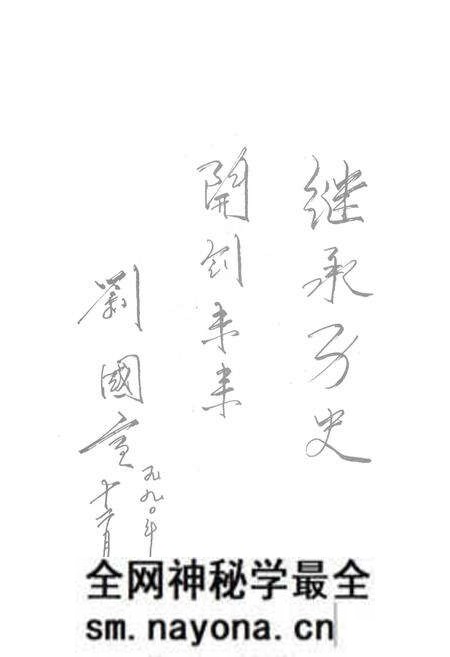 继承历史
開创未来
劉國宣
一九九〇年
十二月
全网神秘学最全
sm.nayona.cn